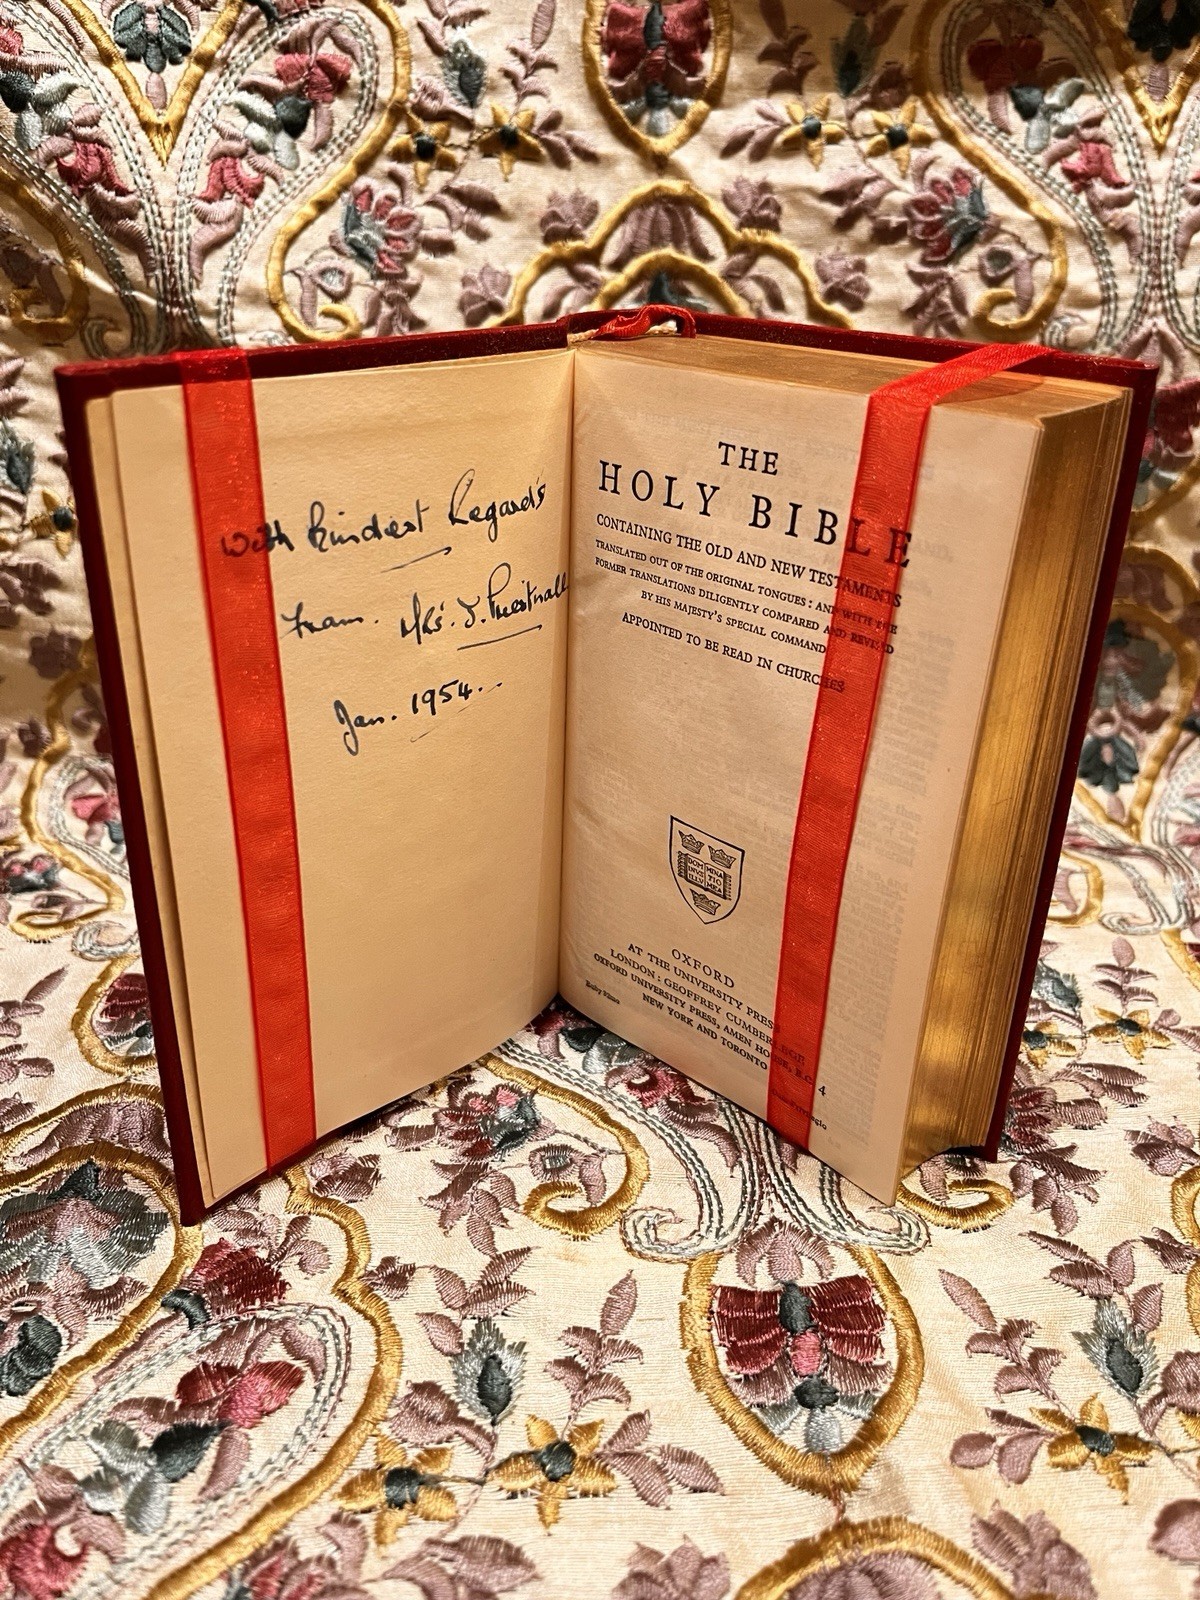 With kindest Regard's
From. Mrs. J. Prestnall
Jan. 1954..
THE
HOLY BIBLE
CONTAINING THE OLD AND NEW TESTAMENTS
TRANSLATED OUT OF THE ORIGINAL TONGUES: AND WITH THE
FORMER TRANSLATIONS DILIGENTLY COMPARED AND REVISED
BY HIS MAJESTY'S SPECIAL COMMAND
APPOINTED TO BE READ IN CHURCHES
DOMI MINA
INVS TIO
ILLV MEA
OXFORD
AT THE UNIVERSITY PRESS
LONDON: GEOFFREY CUMBERLEGE
OXFORD UNIVERSITY PRESS, AMEN HOUSE, E.C. 4
NEW YORK AND TORONTO
Ruby 32mo